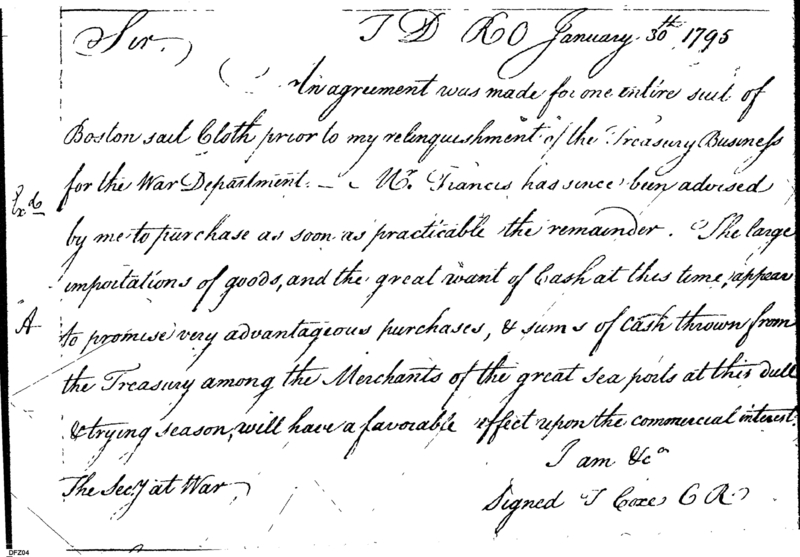 T D R O January 30th 1795
Sir.
An agreement was made for one entire suit of
Boston sail Cloth prior to my relinquishment of the Treasury Business
for the War Department. – Mr. Francis has since been advised
Exd
by me to purchase as soon as practicable the remainder. The large
importations of goods, and the great want of Cash at this time, appear
A
to promise very advantageous purchases, & sums of cash thrown from
the Treasury among the Merchants of the great sea ports at this dull
& trying season, will have a favorable effect upon the commercial interest.
I am &c
The Secy at War
Signed T Coxe C R.
_DFZ04